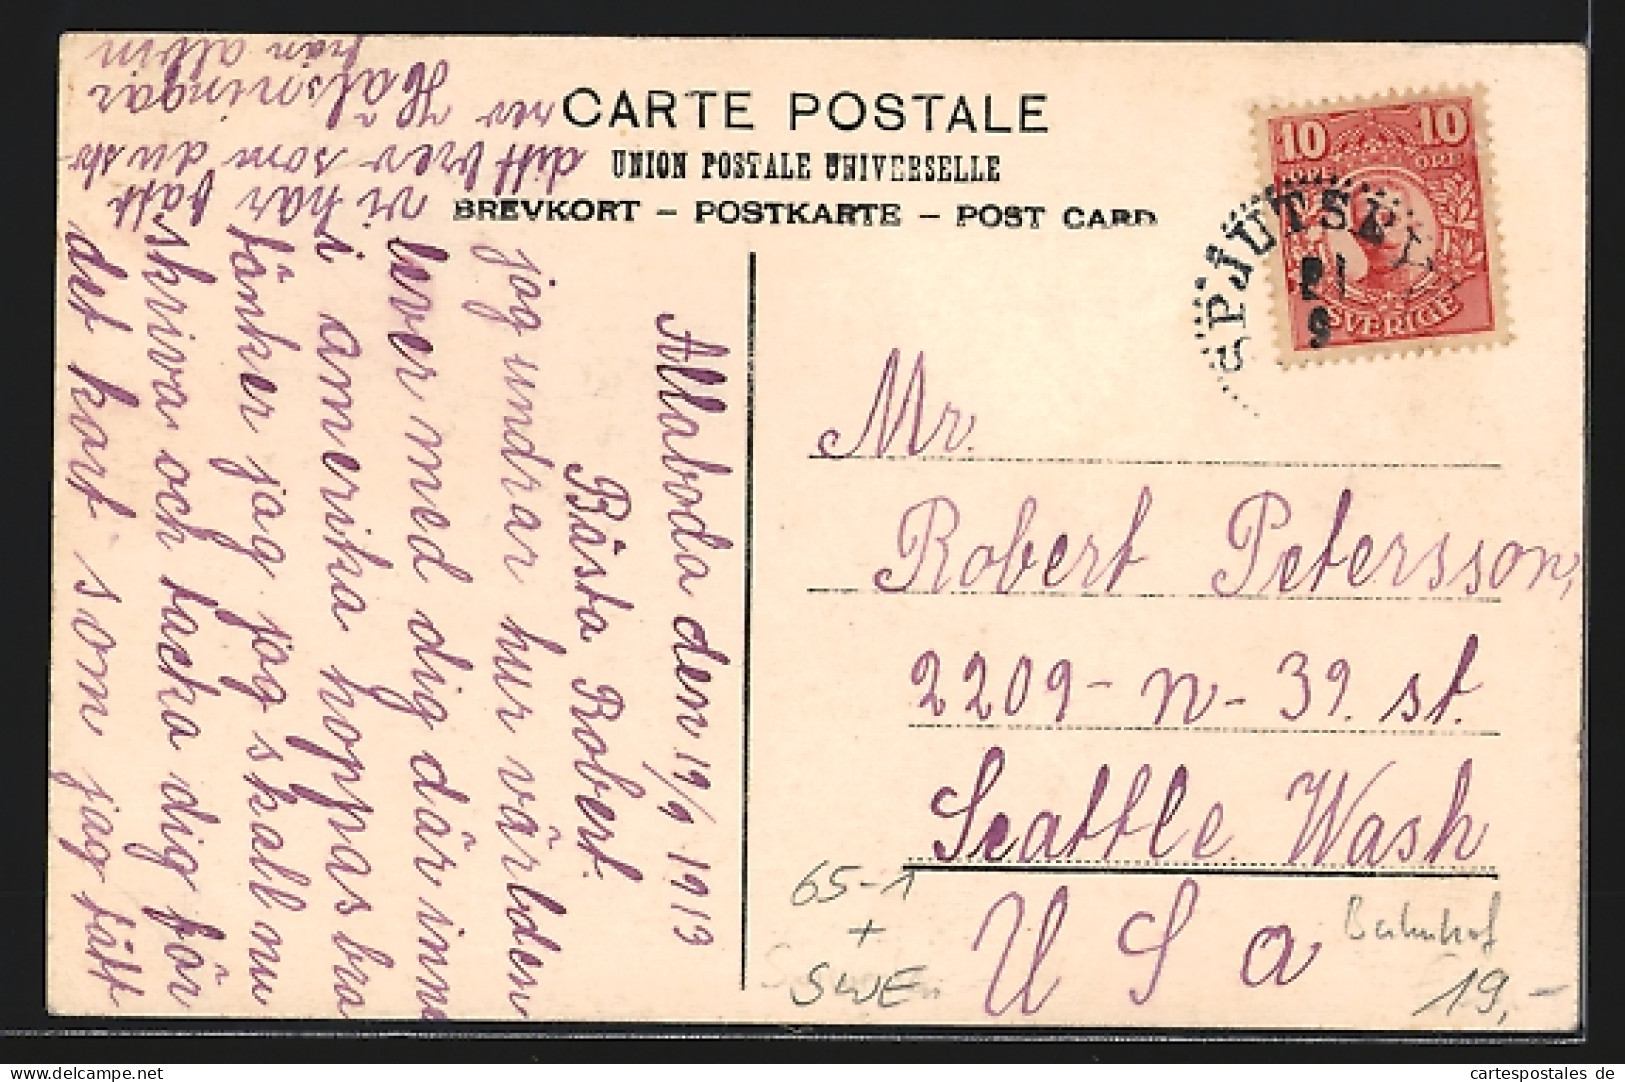 CARTE POSTALE
UNION POSTALE UNIVERSELLE
BREVKORT – POSTKARTE – POST CARD
10 10
ÖRE
SVERIGE
SPJUTSBY
21
9
Mr.
Robert Petersson,
2209-n-39. st.
Seattle Wash
U S a
65-1
+
SWE
Bahnhof
19,-
Allaboda den 19/9 1913
Bästa Robert.
jog undrar hur värden
lever med dig där inne
i amerika hoppas bra
tänker jag jag skall nu
skriva och tacka dig för
det kort som jag fått
vi har fått
ditt brev som du sk-
rev Hälsningar
från albin
cartespostales.de